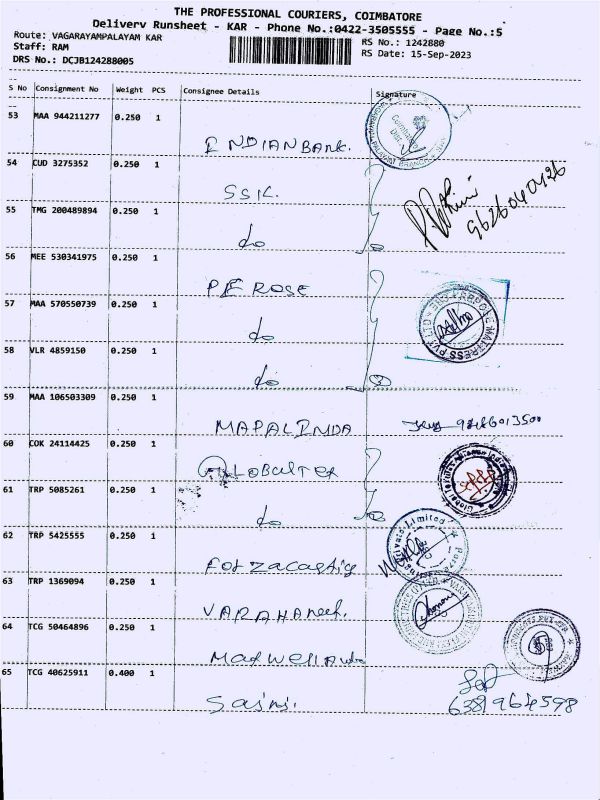 THE PROFESSIONAL COURIERS, COIMBATORE
Delivery Runsheet - KAR - Phone No.:0422-3505555 - Page No.:5
Route: VAGARAYAMPALAYAM KAR
RS No.: 1242880
Staff: RAM
RS Date: 15-Sep-2023
DRS No.: DCJB124288005
S No Consignment No Weight PCS Consignee Details Signature
53 MAA 944211277 0.250 1
INDIAN BANK.
54 CUD 3275352 0.250 1
SSK.
9626040426
55 TMG 200489894 0.250 1
do
56 MEE 530341975 0.250 1
PE ROSE
57 MAA 570550739 0.250 1
do
MATTRESS PVT LTD
58 VLR 4859150 0.250 1
do
59 MAA 106503309 0.250 1
MAPALINDA
60 COK 24114425 0.250 1
61 TRP 5085261 0.250 1
do
62 TRP 5425555 0.250 1
Private Limited
63 TRP 1369094 0.250 1
64 TCG 50464896 0.250 1
Maxwell Auto
65 TCG 40625911 0.400 1